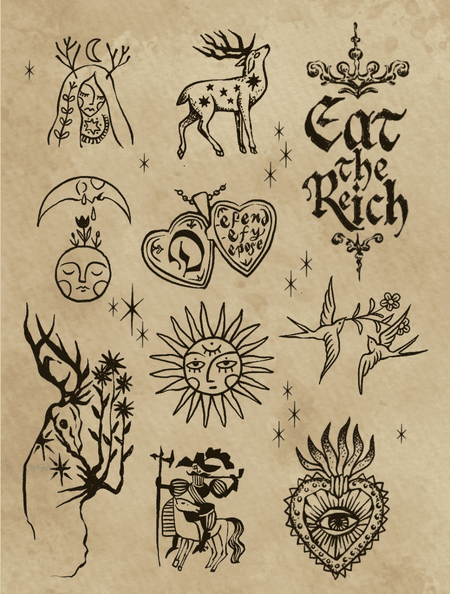 Eat
the
Reich
D
efend
efy
epose